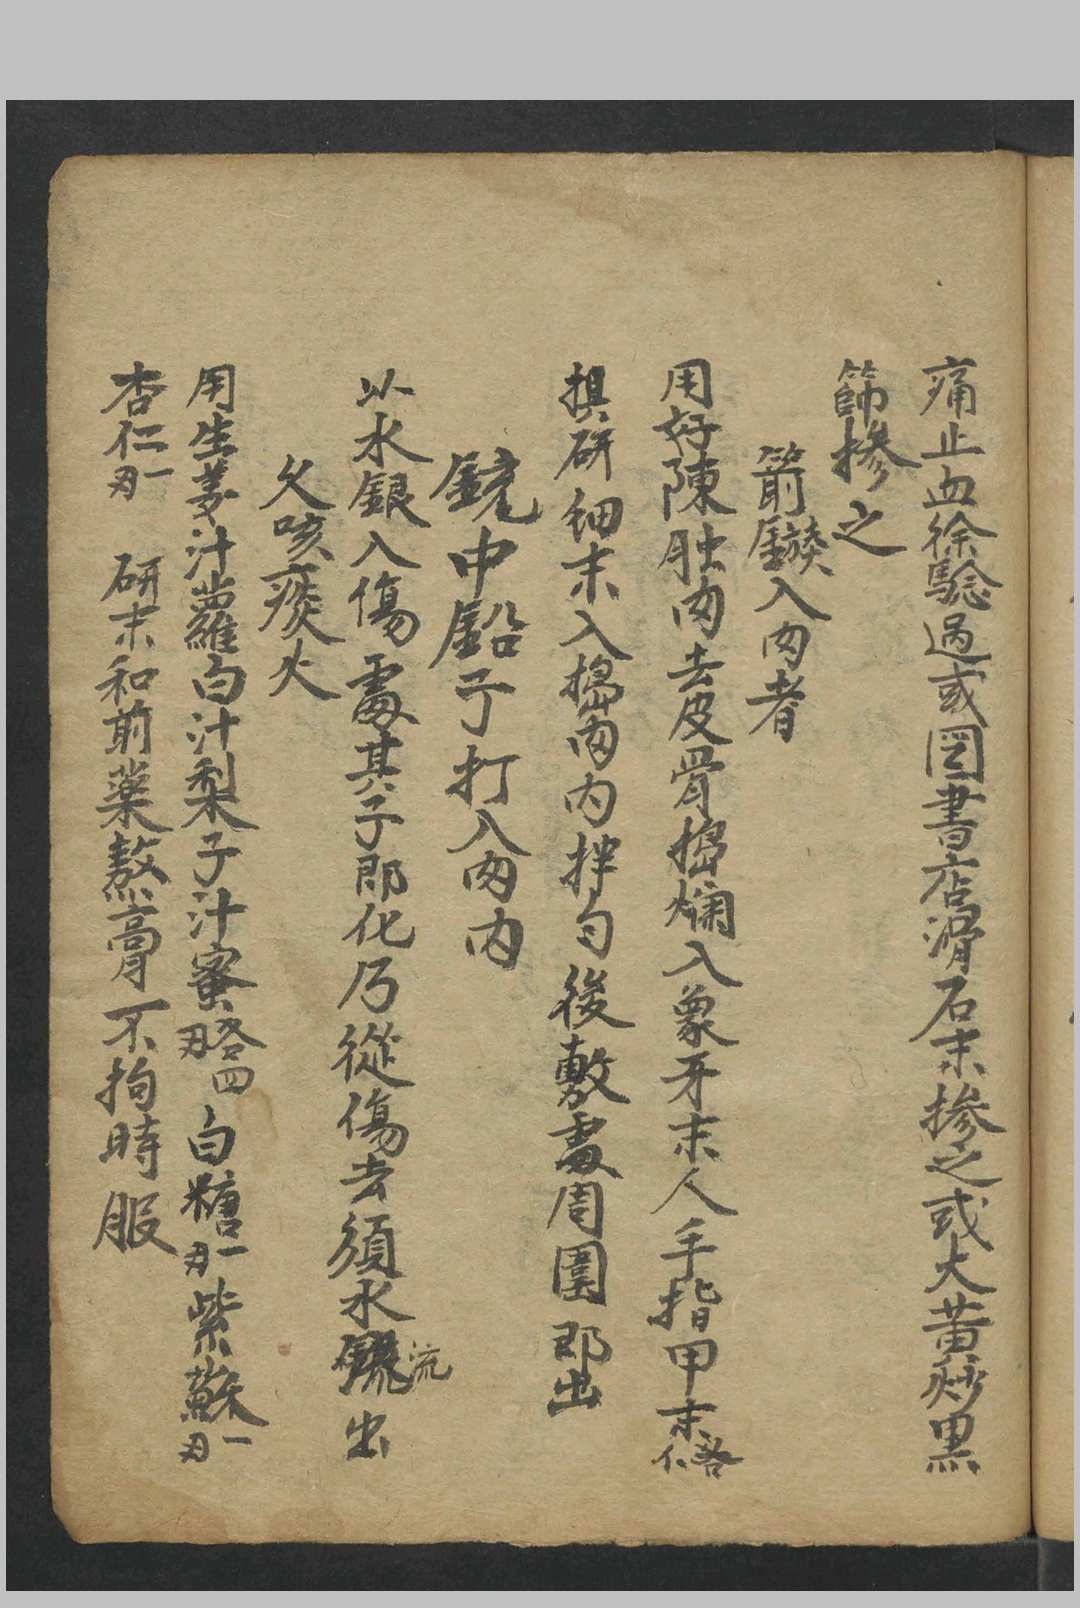 痛止血徐騐過或図書店滑石末掺之或大黄炒黒
篩掺之
箭鏃入肉者
用好陳肚肉去皮骨搗爛入象牙末人手指甲末各等
損研細末入搗肉内拌匀後敷處周圍即出
銃中鉛子打入肉内
以水銀入傷處其子即化乃從傷去須水銀流出
久咳痰火
用生姜汁蘿白汁梨子汁蜜各四刄白糖一刄紫蘇一刄
杏仁一刄 研末和前藥熬膏不拘時服